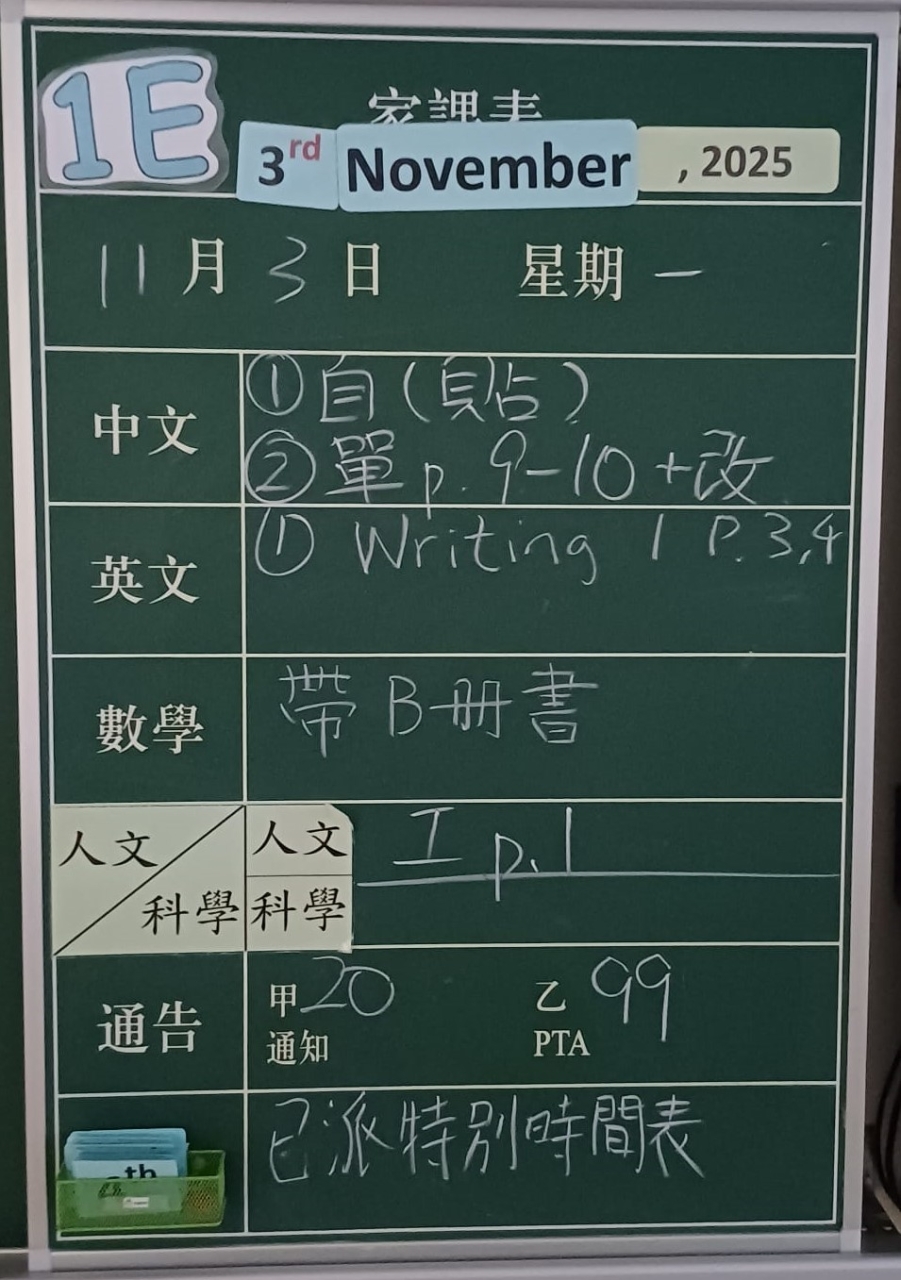 1E
家課表
3rd November , 2025
11月3日 星期一
中文 ①自(貼)
②單p.9-10+改
英文 ① Writing 1 P.3,4
數學 帶B册書
人文 科學 人文 工 p.1
科學
通告 甲20 乙99
通知 PTA
已派特別時間表
th